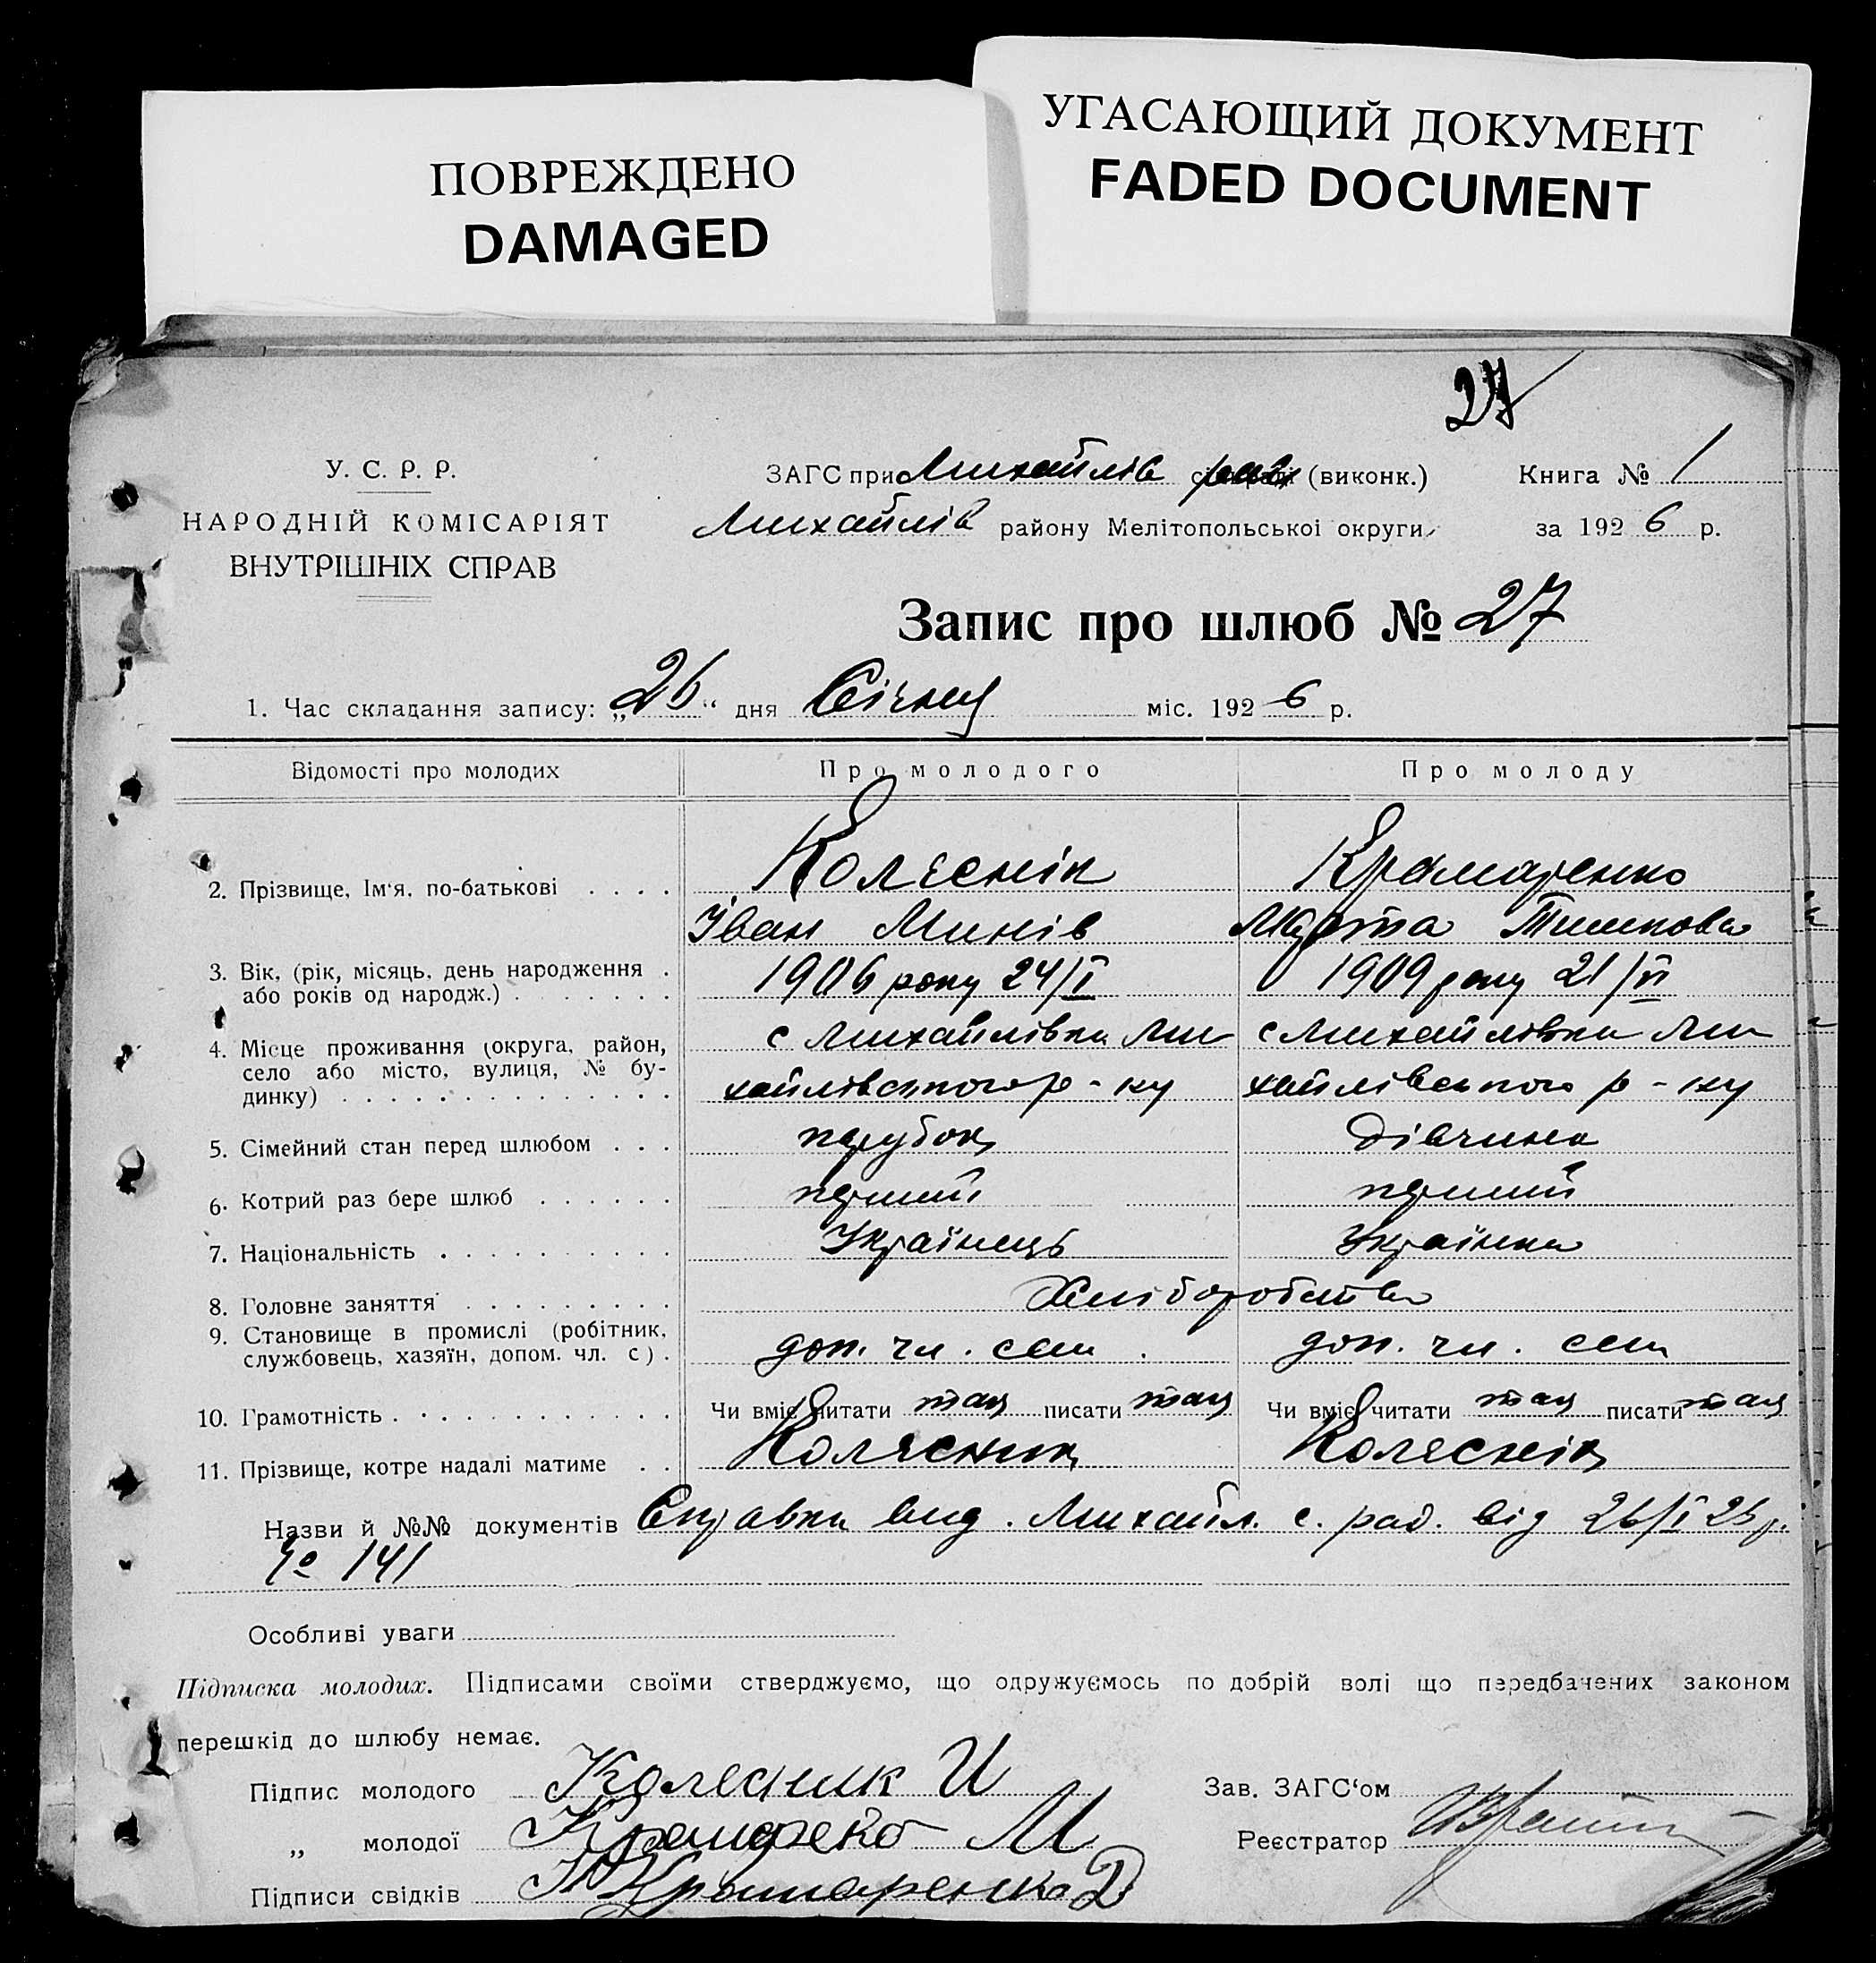 УГАСАЮЩИЙ ДОКУМЕНТ
FADED DOCUMENT
ПОВРЕЖДЕНО
DAMAGED
27
У. С. Р. Р.
НАРОДНІЙ КОМІСАРІЯТ
ВНУТРІШНІХ СПРАВ
ЗАГС при Михайлів (виконк.) Книга № 1
Михайлів району Мелітопольської округи за 1926 р.
Запис про шлюб № 27
1. Час складання запису: „26“ дня Січня міс. 1926 р.
Відомості про молодих Про молодого Про молоду
2. Прізвище, Ім‘я, по-батькові . . . . Колєснік Крамаренко
Іван Минів Марта Тимкова
3. Вік, (рік, місяць, день народження . або років од народж.) . . . . . . . 1906 року 24/I 1909 року 21/VI
4. Місце проживання (округа, район, село або місто, вулиця, № будинку) с Михайлівка Ми с Михайлівка Ми
хайлівського р-ну хайлівського р-ну
5. Сімейний стан перед шлюбом . . . парубок дівчина
6. Котрий раз бере шлюб . . . . . . перший перший
7. Національність . . . . . . . . . . Українець Українка
8. Головне заняття . . . . . . . . . Хліборобство
9. Становище в промислі (робітник, службовець, хазяїн, допом. чл. с) . доп. чл. сем. доп. чл. сем
10. Грамотність . . . . . . . . . . . . Чи вміє читати так писати так Чи вміє читати так писати так
11. Прізвище, котре надалі матиме . . Колєсник Колєснік
Назви й №№ документів Справка вид. Михайл. с. рад. від 26/I 26 р.
№ 141
Особливі уваги
Підписка молодих. Підписами своїми стверджуємо, що одружуємось по добрій волі що передбачених законом
перешкід до шлюбу немає.
Підпис молодого Колесник И Зав. ЗАГС‘ом
„ молодої М Реєстратор
Підписи свідків Крамаренко Д